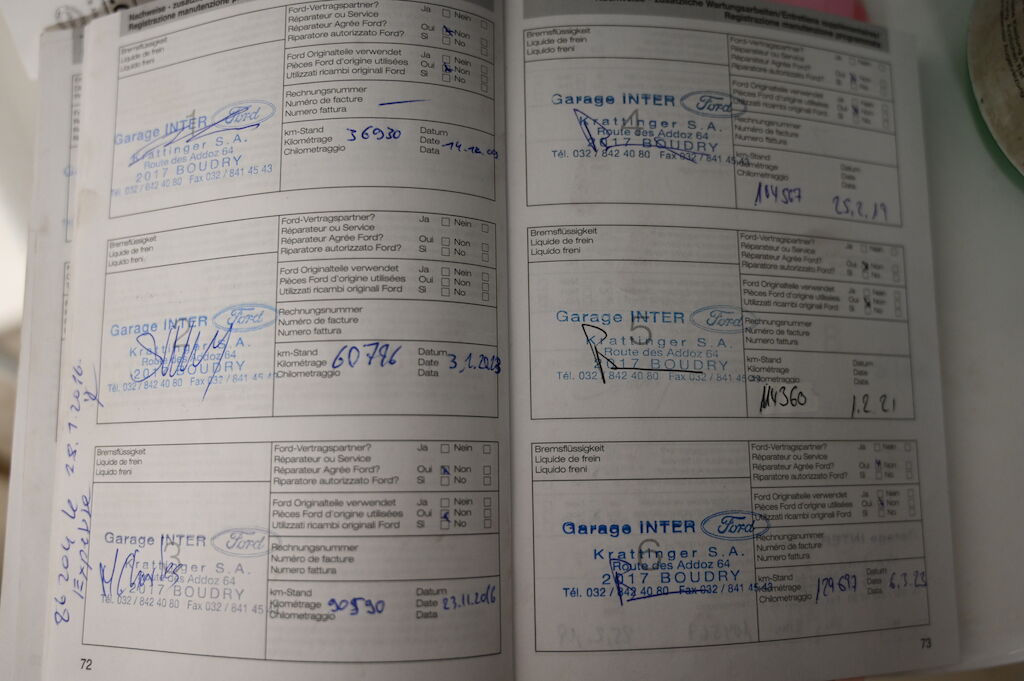 Nachweise - zusätz
Registrazione manutenzione p
Bremsflüssigkeit
Liquide de frein
Liquido freni
Ford-Vertragspartner?
Réparateur ou Service
Réparateur Agréé Ford?
Riparatore autorizzato Ford?
Ja Nein
Oui Non
Si No
Ford Originalteile verwendet
Pièces Ford d'origine utilisées
Utilizzati ricambi originali Ford
Ja Nein
Oui Non
Si No
Rechnungsnummer
Numéro de facture
Numero fattura
Garage INTER Ford
Krattinger S.A.
Route des Addoz 64
2017 BOUDRY
Tél. 032 / 842 40 80 Fax 032 / 841 45 43
km-Stand
Kilométrage 36930
Chilometraggio
Datum
Date
Data
Bremsflüssigkeit
Liquide de frein
Liquido freni
Ford-Vertragspartner?
Réparateur ou Service
Réparateur Agréé Ford?
Riparatore autorizzato Ford?
Ja Nein
Oui Non
Si No
Ford Originalteile verwendet
Pièces Ford d'origine utilisées
Utilizzati ricambi originali Ford
Ja Nein
Oui Non
Si No
Rechnungsnummer
Numéro de facture
Numero fattura
Garage INTER Ford
Krattinger S.A.
Route des Addoz 64
2017 BOUDRY
Tél. 032 / 842 40 80 Fax 032 / 841 45
km-Stand
Kilométrage 60796
Chilometraggio
Datum
Date 3.1.2013
Data
Bremsflüssigkeit
Liquide de frein
Liquido freni
Ford-Vertragspartner?
Réparateur ou Service
Réparateur Agréé Ford?
Riparatore autorizzato Ford?
Ja Nein
Oui Non
Si No
Ford Originalteile verwendet
Pièces Ford d'origine utilisées
Utilizzati ricambi originali Ford
Ja Nein
Oui Non
Si No
Rechnungsnummer
Numéro de facture
Numero fattura
Garage INTER Ford
Krattinger S.A.
Route des Addoz 64
2017 BOUDRY
Tél. 032 / 842 40 80 Fax 032 / 841 45
km-Stand
Kilométrage 90590
Chilometraggio
Datum
Date 23.11.2016
Data
le 28.1.2016
72
Nachweise - zusätzliche Wartungsarbeiten/Entretiens
Registrazione manutenzione programmata
Bremsflüssigkeit
Liquide de frein
Liquido freni
Ford-Vertragspartner?
Réparateur ou Service
Réparateur Agréé Ford?
Riparatore autorizzato Ford?
Ja Nein
Oui Non
Si No
Ford Originalteile verwendet
Pièces Ford d'origine utilisées
Utilizzati ricambi originali Ford
Ja Nein
Oui Non
Si No
Rechnungsnummer
Numéro de facture
Numero fattura
4
Garage INTER Ford
Krattinger S.A.
Route des Addoz 64
2017 BOUDRY
Tél. 032 / 842 40 80 Fax 032 / 841 45 43
km-Stand
Kilométrage
Chilometraggio
Datum
Date
Data
25.2.19
Bremsflüssigkeit
Liquide de frein
Liquido freni
Ford-Vertragspartner?
Réparateur ou Service
Réparateur Agréé Ford?
Riparatore autorizzato Ford?
Ja Nein
Oui Non
Si No
Ford Originalteile verwendet
Pièces Ford d'origine utilisées
Utilizzati ricambi originali Ford
Ja Nein
Oui Non
Si No
Rechnungsnummer
Numéro de facture
Numero fattura
5
Garage INTER Ford
Krattinger S.A.
Route des Addoz 64
2017 BOUDRY
Tél. 032 / 842 40 80 Fax 032 / 841 45
km-Stand
Kilométrage
Chilometraggio
Datum
Date
Data
114360
1.2.21
Bremsflüssigkeit
Liquide de frein
Liquido freni
Ford-Vertragspartner?
Réparateur ou Service
Réparateur Agréé Ford?
Riparatore autorizzato Ford?
Ja Nein
Oui Non
Si No
Ford Originalteile verwendet
Pièces Ford d'origine utilisées
Utilizzati ricambi originali Ford
Ja Nein
Oui Non
Si No
Rechnungsnummer
Numéro de facture
Numero fattura
6
Garage INTER Ford
Krattinger S.A.
Route des Addoz 64
2017 BOUDRY
Tél. 032 / 842 40 80 Fax 032
km-Stand
Kilométrage
Chilometraggio
Datum
Date 6.3.23
Data
73